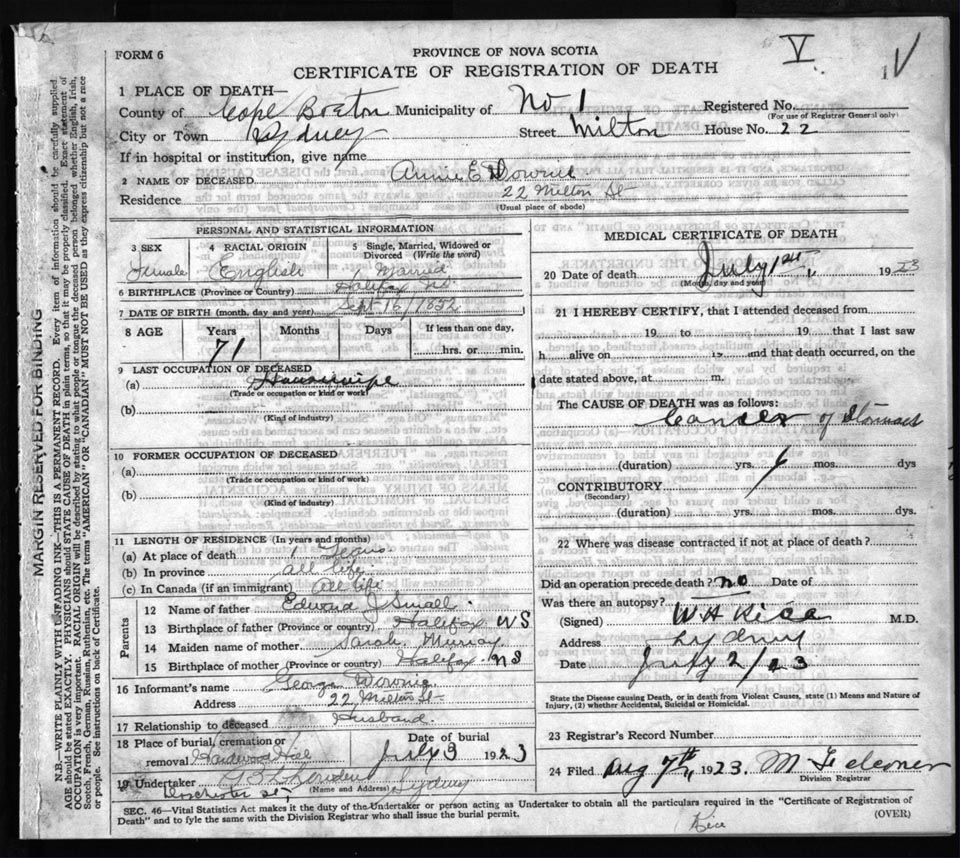 V V
FORM 6
PROVINCE OF NOVA SCOTIA
CERTIFICATE OF REGISTRATION OF DEATH
1 PLACE OF DEATH—
County of Cape Breton Municipality of No 1 Registered No.
(For use of Registrar General only)
City or Town Sydney Street Milton House No. 22
If in hospital or institution, give name
2 NAME OF DECEASED Annie E Downie
Residence 22 Milton St
(Usual place of abode)
PERSONAL AND STATISTICAL INFORMATION
3 SEX 4 RACIAL ORIGIN 5 Single, Married, Widowed or Divorced (Write the word)
Female English Married
6 BIRTHPLACE (Province or Country) Halifax NS
7 DATE OF BIRTH (month, day and year) Sept 15/1852
8 AGE Years Months Days If less than one day,
71 hrs. or min.
9 LAST OCCUPATION OF DECEASED
(a) Housewife
(Trade or occupation or kind or work)
(b)
(Kind of industry)
10 FORMER OCCUPATION OF DECEASED
(a)
(Trade or occupation or kind of work)
(b)
(Kind of industry)
11 LENGTH OF RESIDENCE (In years and months)
(a) At place of death 1 Years
(b) In province all life
(c) In Canada (if an immigrant) All life
Parents
12 Name of father Edward J Small
13 Birthplace of father (Province or country) Halifax NS
14 Maiden name of mother Sarah Murray
15 Birthplace of mother (Province or country) Halifax NS
16 Informant's name George Downie
Address 22 Milton St
17 Relationship to deceased Husband.
18 Place of burial, cremation or removal Hardwood Hill Date of burial July 3 1923
19 Undertaker
Dorchester St (Name and Address) Sydney
MEDICAL CERTIFICATE OF DEATH
20 Date of death July 1st 1923
(Month, day and year)
21 I HEREBY CERTIFY, that I attended deceased from
19 to 19 that I last saw
h alive on 19 and that death occurred, on the
date stated above, at m.
The CAUSE OF DEATH was as follows:
Cancer of Stomach
(duration) yrs. mos. dys
CONTRIBUTORY
(Secondary)
(duration) yrs. mos. dys
22 Where was disease contracted if not at place of death?
Did an operation precede death? no Date of
Was there an autopsy?
(Signed) W H Rice M.D.
Address Sydney
Date July 2/23
State the Disease causing Death, or in death from Violent Causes, state (1) Means and Nature of Injury, (2) whether Accidental, Suicidal or Homicidal.
23 Registrar's Record Number
24 Filed Aug 7th 1923.
Division Registrar
SEC. 46—Vital Statistics Act makes it the duty of the Undertaker or person acting as Undertaker to obtain all the particulars required in the "Certificate of Registration of
Death" and to fyle the same with the Division Registrar who shall issue the burial permit.
(OVER)
Rice
MARGIN RESERVED FOR BINDING
N.B.—WRITE PLAINLY WITH UNFADING INK—THIS IS A PERMANENT RECORD. Every item of information should be carefully supplied.
AGE should be stated EXACTLY. PHYSICIANS should STATE CAUSE OF DEATH in plain terms, so that it may be properly classified. Exact statement of
OCCUPATION is very important. RACIAL ORIGIN will be described by stating to what people or tongue the deceased person belonged whether English, Irish,
Scotch, French, German, Russian, Ruthenian, etc. The terms "AMERICAN" or "CANADIAN" MUST NOT BE USED as they express citizenship but not a race
or people. See instructions on back of Certificate.